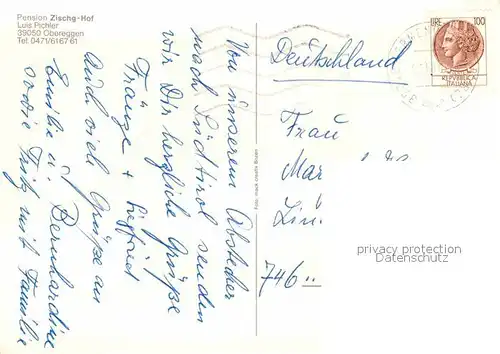 Pension Zischg-Hof
Luis Pichler
39050 Obereggen
Tel: 0471/616761
Von unserem Abstecher
nach Südtirol senden
wir Dir herzliche Grüße
Fränze + Siegfried
Auch viel Grüße an
Emilie u. Bernhardine
sowie Fritz mit Familie
Foto: mack creativ Bozen
Deutschland
LIRE 100
REPVBBLICA
ITALIANA
Frau
Mar
Lin
746
privacy protection
Datenschutz